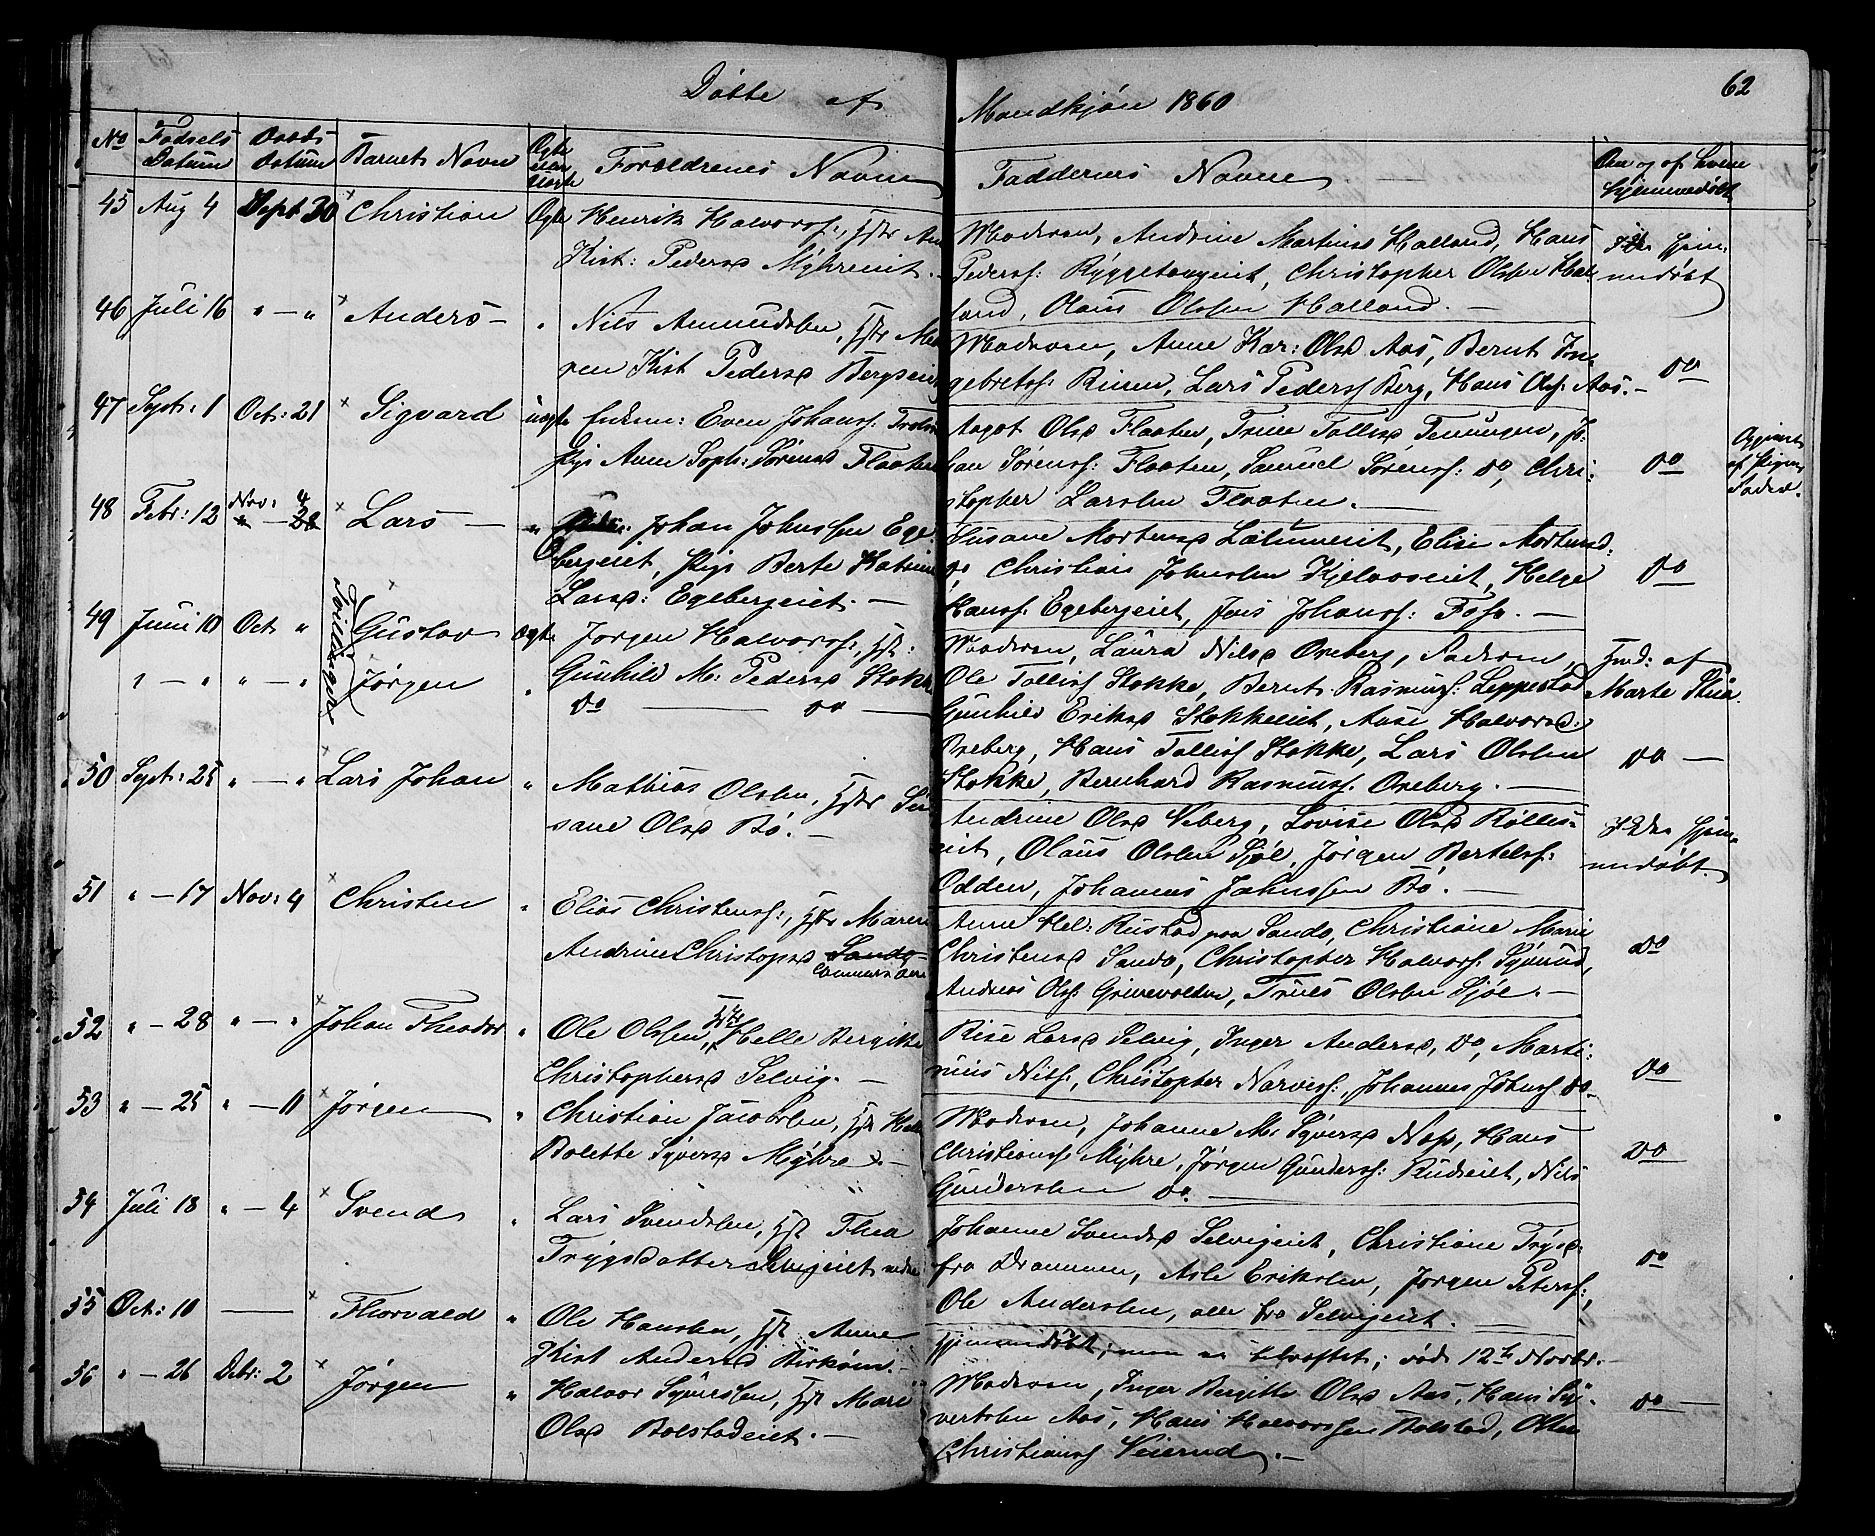 Døbte af Mandkjøn 1860
62
No Fødsels Datum Daabs Datum Barnets Navn Ægte eller Uægte Forældrenes Navne
Faddernes Navne
Om og af hvem hjemmedøbt
45 Aug 4 Sept 30 Christian Ægte Henrik Halvorss:, Hstr An
Kist: Pedersd Myhreeiet. –
Moderen, Andrine Martinsd Halland, Hans
Pederss: Ryggetangeiet, Christopher Olssen Hal-
land, Olaus Olssen Halland. –
hjem-
medøbt
46 Juli 16 " – " Anders – " Nils Amundsen, Hstr Ma
ren Kist Pedersd Bergseiet
Moderen, Anne Kar: Olsd Aas, Bernt In-
gebretss: Rinen, Lars Pederss Berg, Hans Olss: Aas. –
do
47 Sept: 1 Oct: 21 Sigvard uægte Enkem: Even Johanss:
Pige Anne Soph: Sørensd Flaaten
Aagot Olsd Flaaten, Trine Tollefsd Temmingen, Jo-
han Sørenss: Flaaten, Samuel Sørenss: do, Chri-
stopher Larssen Flaaten. –
do
Opgivet
af Pigens
Fader.
48 Febr: 12 Nov: 4 Lars – " Johan Johnssen Ege-
bergeiet, Pige Berte Katrine
Larsd: Egebergeiet. –
Susane Mortensd Lallumeiet, Elise Mortensd:
do Christian Johnssen Kjelaaseiet, Helge
Hanss: Egebergeiet, Jens Johanss: Foss. –
do
49 Juni 10 Oct " Tvillinger Gustav Ægte Jørgen Halvorss:, Hst:
Gunhild M: Pedersd Stokke
" – " " – " Jørgen " do — do —
Moderen, Laura Nilsd Oreberg, Faderen,
Ole Tollefss Stokke, Bernt Rasmuss: Leppestad
Gunhild Eriksd Stokkeeiet, Anse Halvorsd:
Oreberg, Hans Tollefss Stokke, Lars Olssen
Stokke, Bernhard Rasmuss: Oreberg. –
Hmd: af
Marte Stua.
do –
50 Sept: 25 " – " Lars Johan " Mathias Olssen, Hstr Su
sane Olsd Bø. –
Andrine Olsd Veberg, Lovise Olsd Rølles-
eiet, Olaus Olssen Sjøl, Jørgen Bertelss:
Odden, Johannes Johnssen Bø. –
hjem-
medøbt.
51 " – 17 Nov: 4 Christen " Elias Christenss:, Hstr Maren
Andrine Christopsd Sando
Anne Hel: Rustad paa Sando, Christiane Marie
Christensd Sando, Christopher Halvors: Syverud,
Andreas Olss: Grinevolden, Truls Olssen Sjøl. –
do
52 " – 28 " – " Johan Theodor " Ole Olssen, Hstr Helle Bergitte
Christophersd Selvig. –
Rise Larsd Selvig, Inger Andersd, do, Marti-
nius Nilss:, Christopher Narvess:, Johannes Johnss: do –
do
53 " – 25 " – 11 Jørgen " Christian Jacobsen, Hstr Hel
Bolette Syversd Myhre. –
Moderen, Johanne M: Syversd Næss, Hans
Christianss: Myhre, Jørgen Gunderss: Rudseiet, Nils
Gunderssen do. –
do
54 Juli 18 " – 4 Svend " Lars Svendsen, Hst Thea
Trygsdatter Selvigeiet nedre
Johanne Svendsd Selvigeiet, Christiane Trygsd:
fra Drammen, Asle Eriksen, Jørgen Peterss:,
Ole Anderssen, alle fra Selvigeiet. –
do
55 Oct: 10 — Thorvald " Ole Hanssen, Hst: Anne
Kist Andersd Birkom. –
Hjemmedøbt, men ei bekræftet; død 12te Novbr. –
56 " – 26 Debr: 2 Jørgen " Halvor Syverssen, Hst Mari
Olsd Bolstadeiet. –
Moderen, Inger Bergitte Olsd Aas, Hans Sy-
vertsen Aas, Hans Halvorssen Bolstad, Otter
Christianss Veierud. –
do –